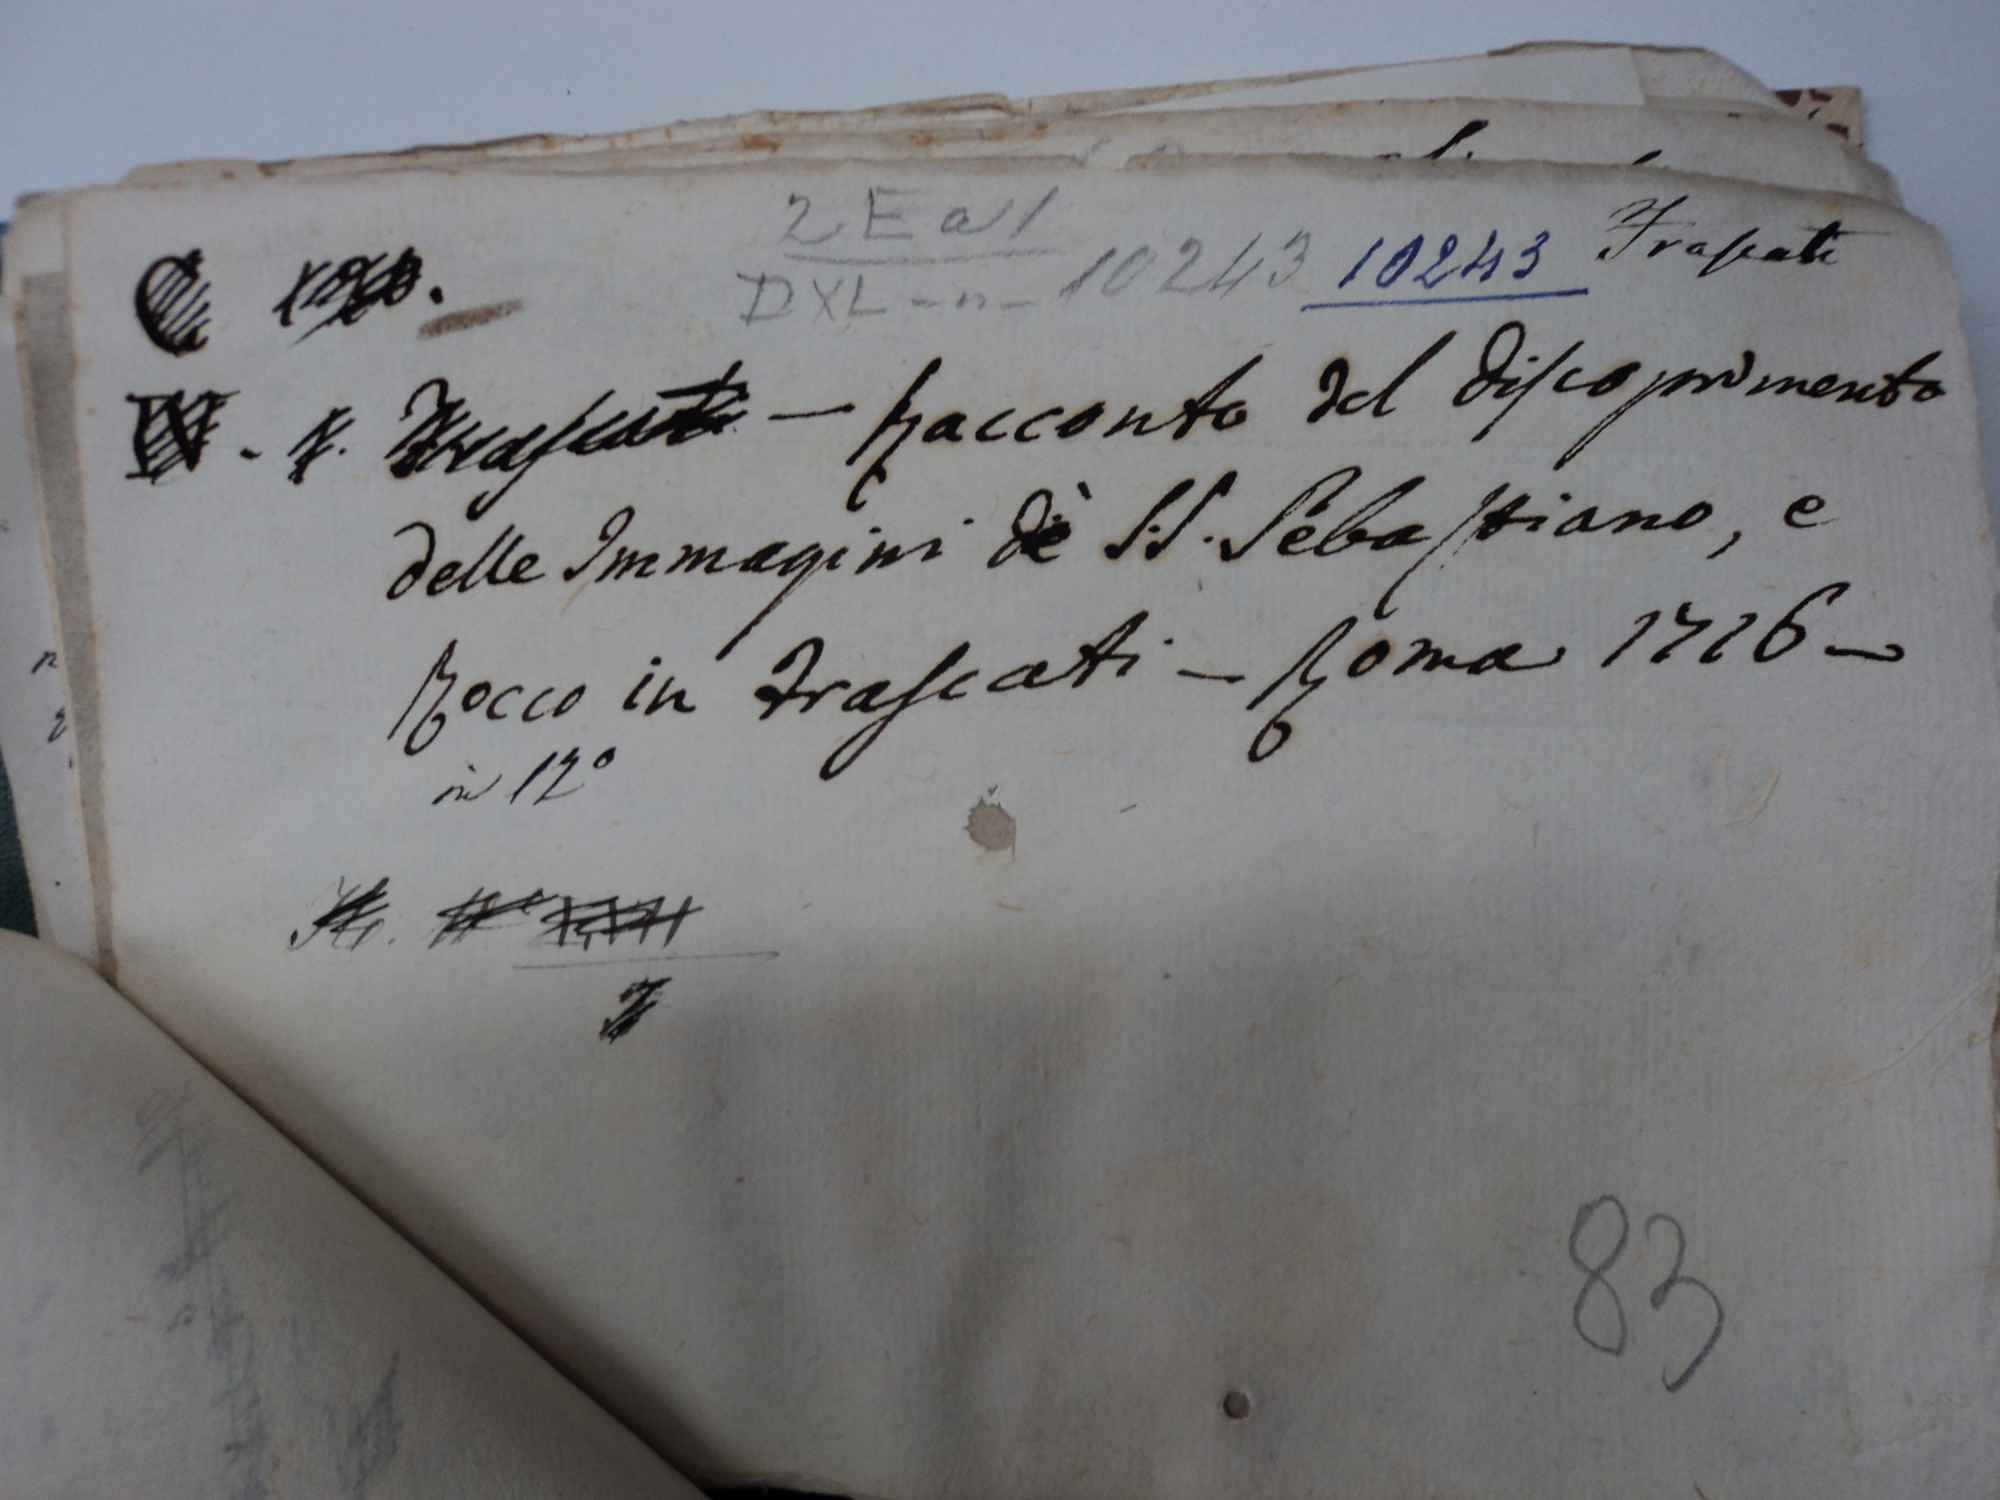 2 E a 1
DXL - n - 10243 10243 Frascati
Frascati — Racconto del discoprimento
delle Immagini dè S.S. Sebastiano, e
Rocco in Frascati — Roma 1716 —
in 12°
83